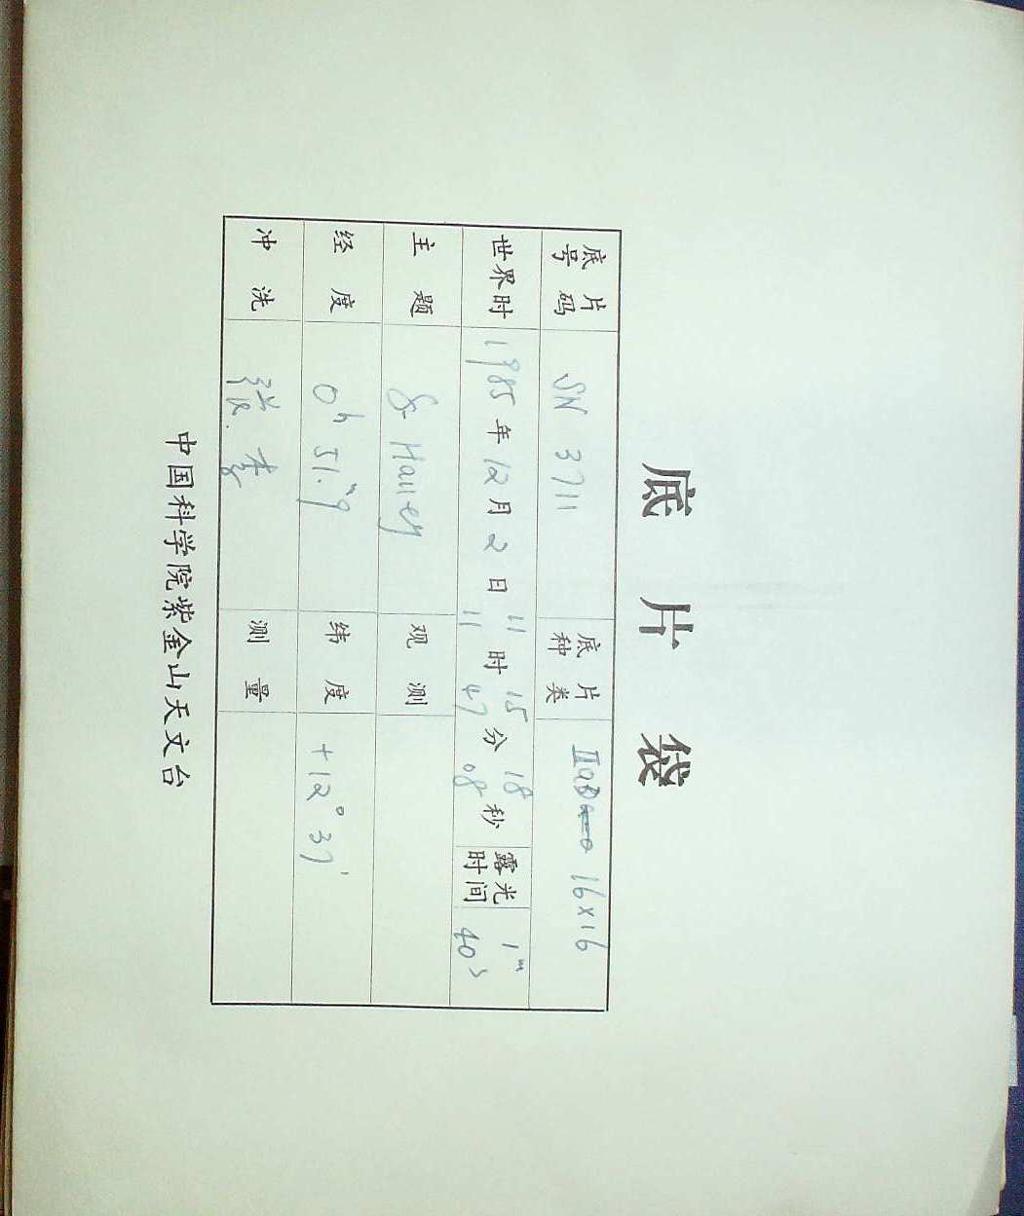 底 片 袋
底片号码 SN 3711 底片种类 IIaD 16×16
世界时 1985年12月2日 11时15分18秒 露光时间 1m
11 47 08 40s
主题 & Halley 观测
经度 0h 51.m9 纬度 +12° 37′
冲洗 张. 李 测量
中国科学院紫金山天文台